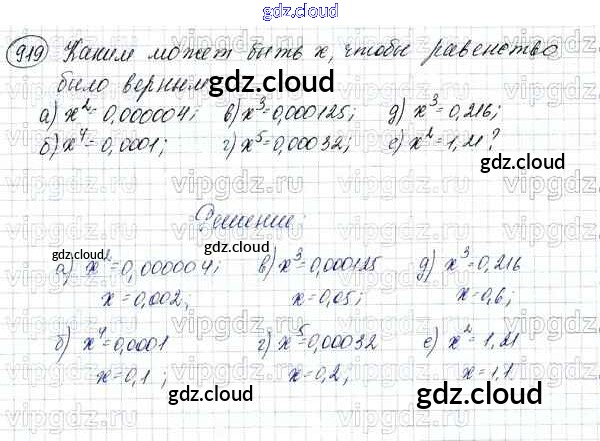 gdz.cloud
919 Каким может быть x, чтобы равенство
было верным
gdz.cloud
а) x²=0,000004; в) x³=0,000125; д) x³=0,216;
б) x⁴=0,0001; г) x⁵=0,00032; е) x²=1,21?
gdz.cloud
Решение:
gdz.cloud gdz.cloud
а) x²=0,000004; в) x³=0,000125 д) x³=0,216
x=0,002, x=0,05; x=0,6;
б) x⁴=0,0001 г) x⁵=0,00032 е) x²=1,21
x=0,1; x=0,2; x=1,1.
gdz.cloud gdz.cloud